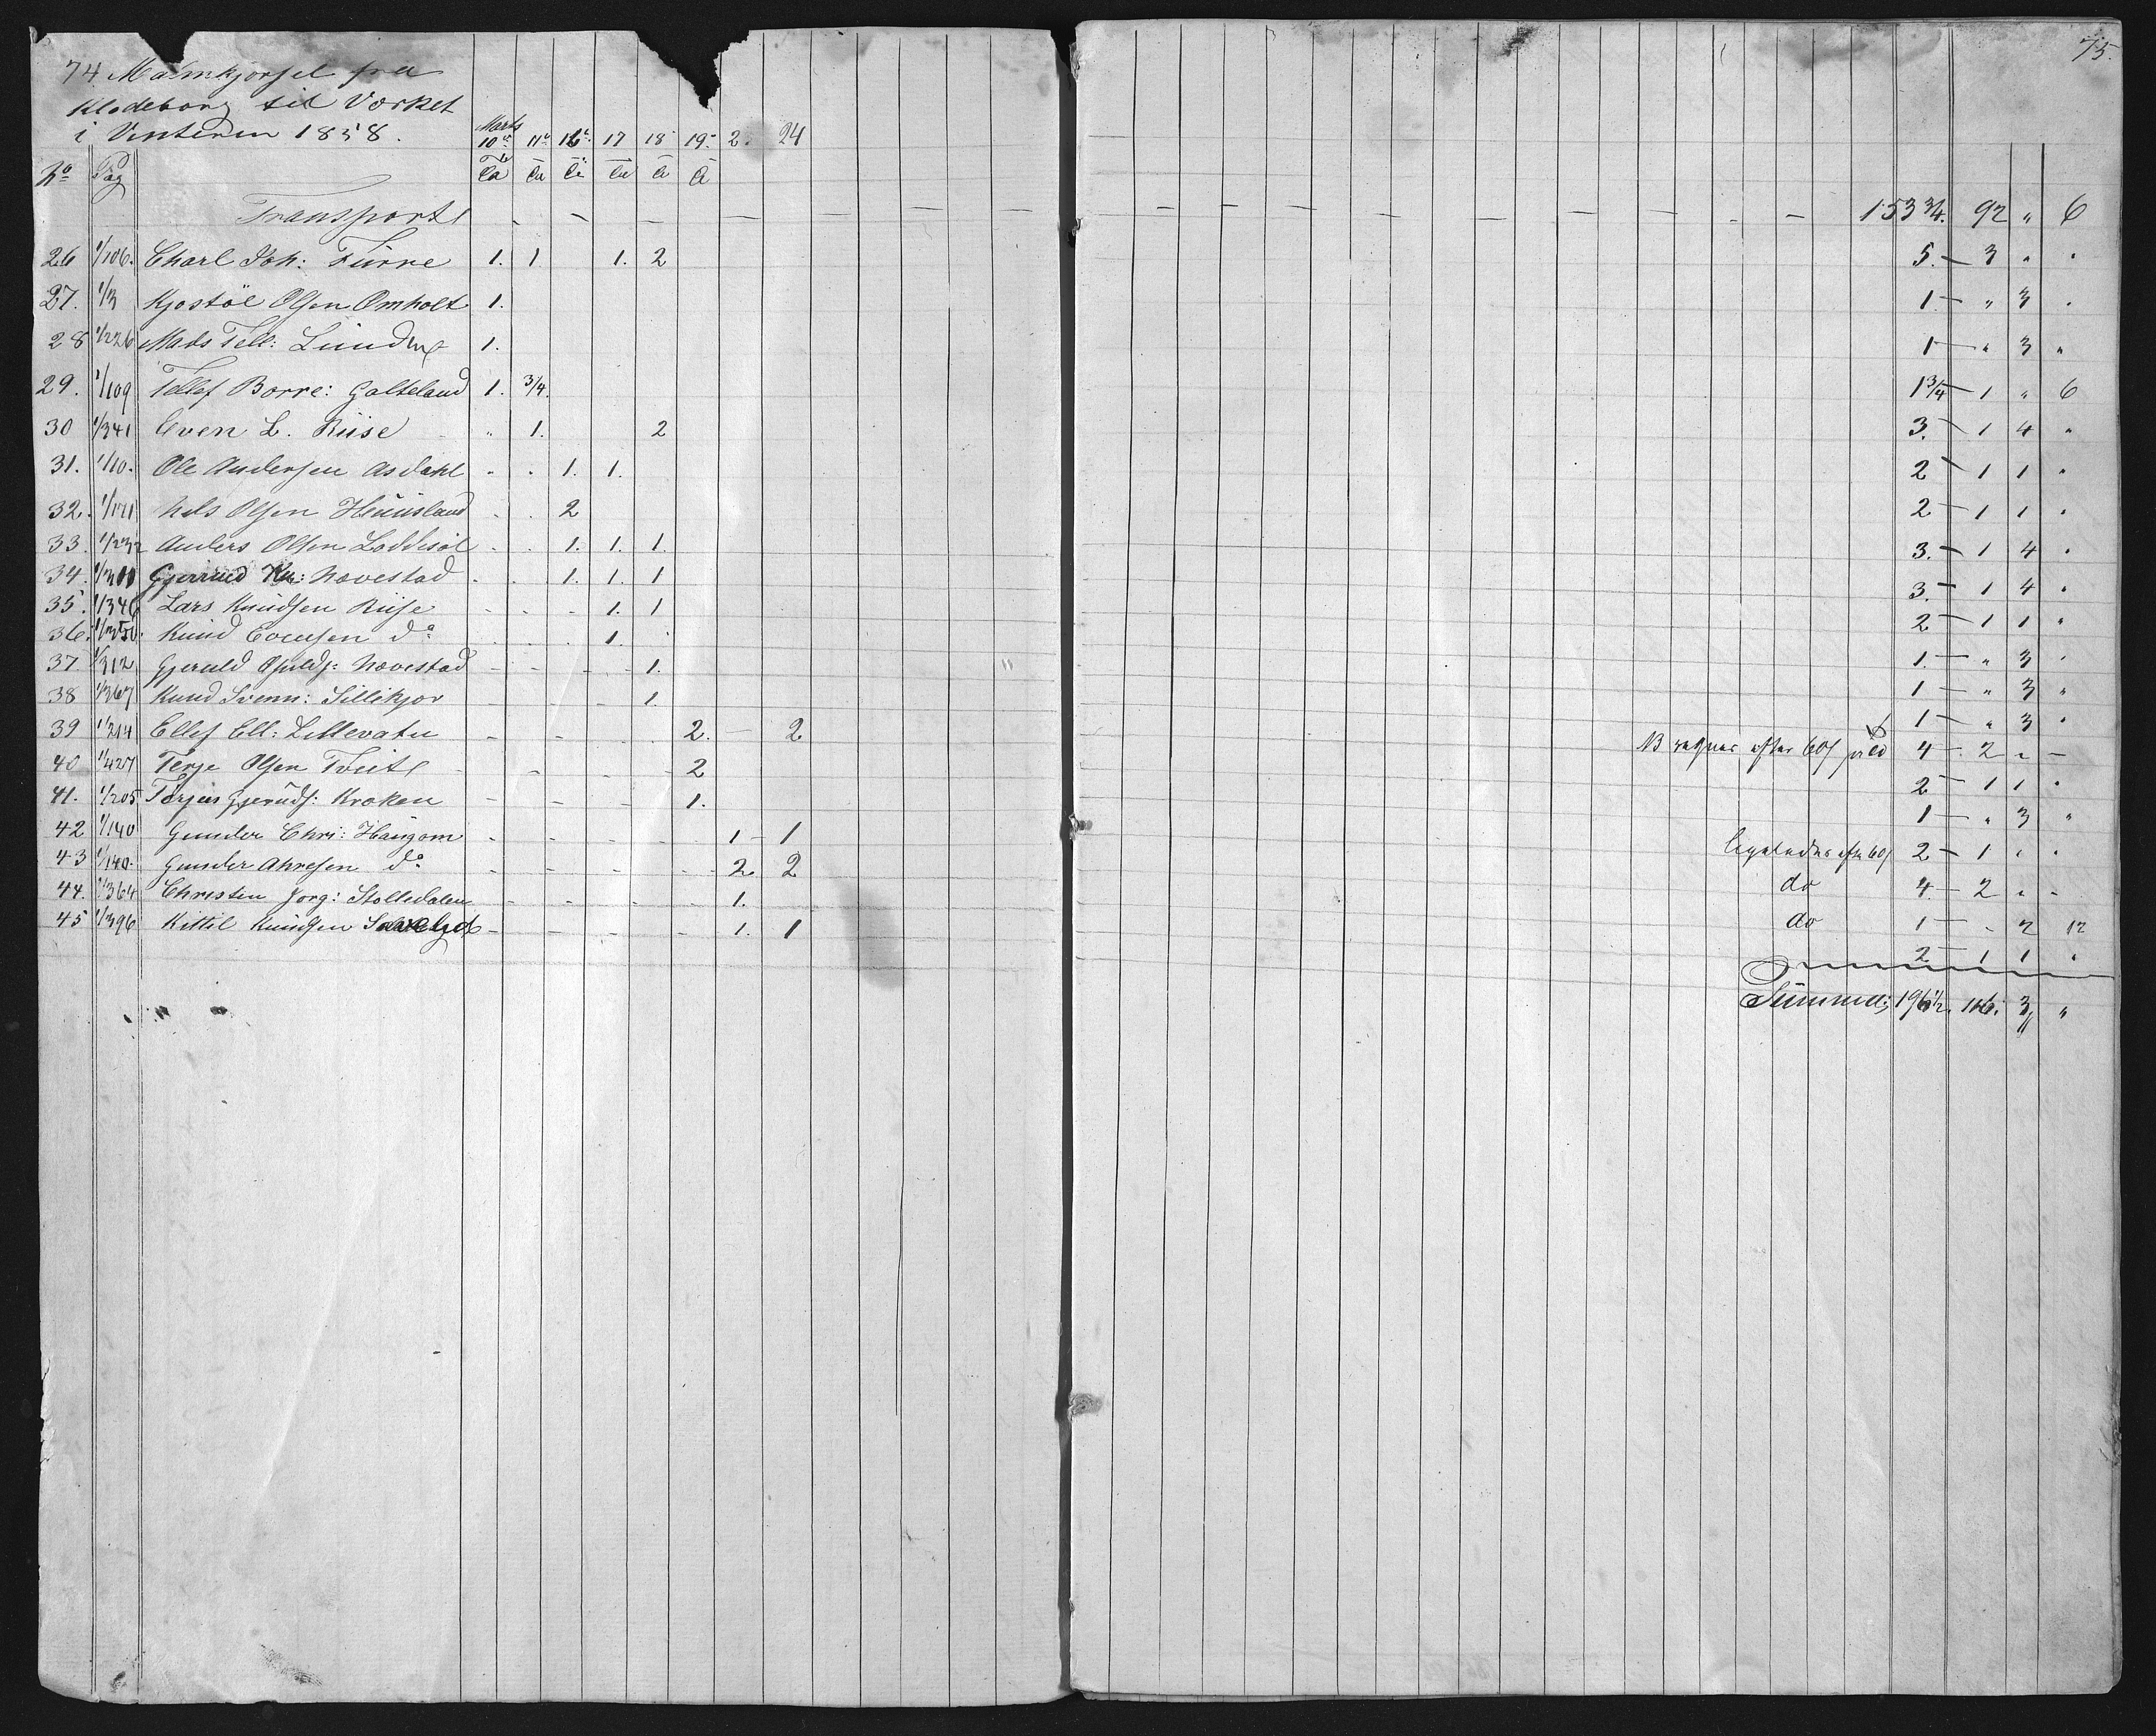 74 Malmkjørsel fra
Klodeborg til Værket
i Vinteren 1858.
Marts
10de 11te 16de 17 18 19 2. 24
No Pag Td
Transport - - - - - - - - 153 3/4. 92 " 6
75.
26 1/106. Charl Joh: Furre 1. 1 1. 2 5. - 3 " "
27. 1/3 Kjøstöl Olsen Omholt 1. 1 - " 3 "
28 1/226 Mads Tell: Lund 1. 1 - " 3 "
29. 1/109 Tellef Borre: Galteland 1. 3/4. 1 3/4 - 1 " 6
30 1/341 Even L. Riise " 1. 2 3. - 1 4 "
31. 1/10. Ole Andersen Asdahl " " 1. 1. 2 - 1 1 "
32. Nels Olsen Heuusland - . 2 2 - 1 1 "
33. 1/232 Anders Olsen Löddesöl - . 1. 1. 1. 3. - 1 4 "
34. Gjerrud Kn: Nævestad - . 1. 1. 1 3. - 1 4 "
35. 1/346 Lars Knudsen Riise - - - 1. 1 2 - 1 1 "
36. 1/350. Knud Evensen do - . . 1. 1. - " 3 "
37. 1/312 Gjeruld Osulds: Nævestad - - - - 1. 1 - " 3 "
38 1/367 Knud Svenn: Sillikjær - - - - 1. 1 - " 3 "
39 1/214 Ellef Ell: Lillevatn - - - 2. - 2 NB regnes efter 60 s pr 4 - 2 " -
40 1/427 Terje Olsen Tveite - - - - 2 2 - 1 1 "
41. 1/205 Terjus Gjeruds: Kroken - - - - 1. 1 - " 3 "
42 1/140 Gunder Chri: Haugom - - - - 1 - 1 ligeledes eftr 60 s 2 - 1 " "
43 1/140. Gunder Ahresen do - - - - 2. 2 do 4 - 2 " -
44. 1/364 Christen Jørg: Stolledalen - - - - 1. do 1 - - 2 12
45 1/396 Kittil Knudsen - - - - 1. 1 2 - 1 1 "
Summa: 196 1/2. 116. 3 "